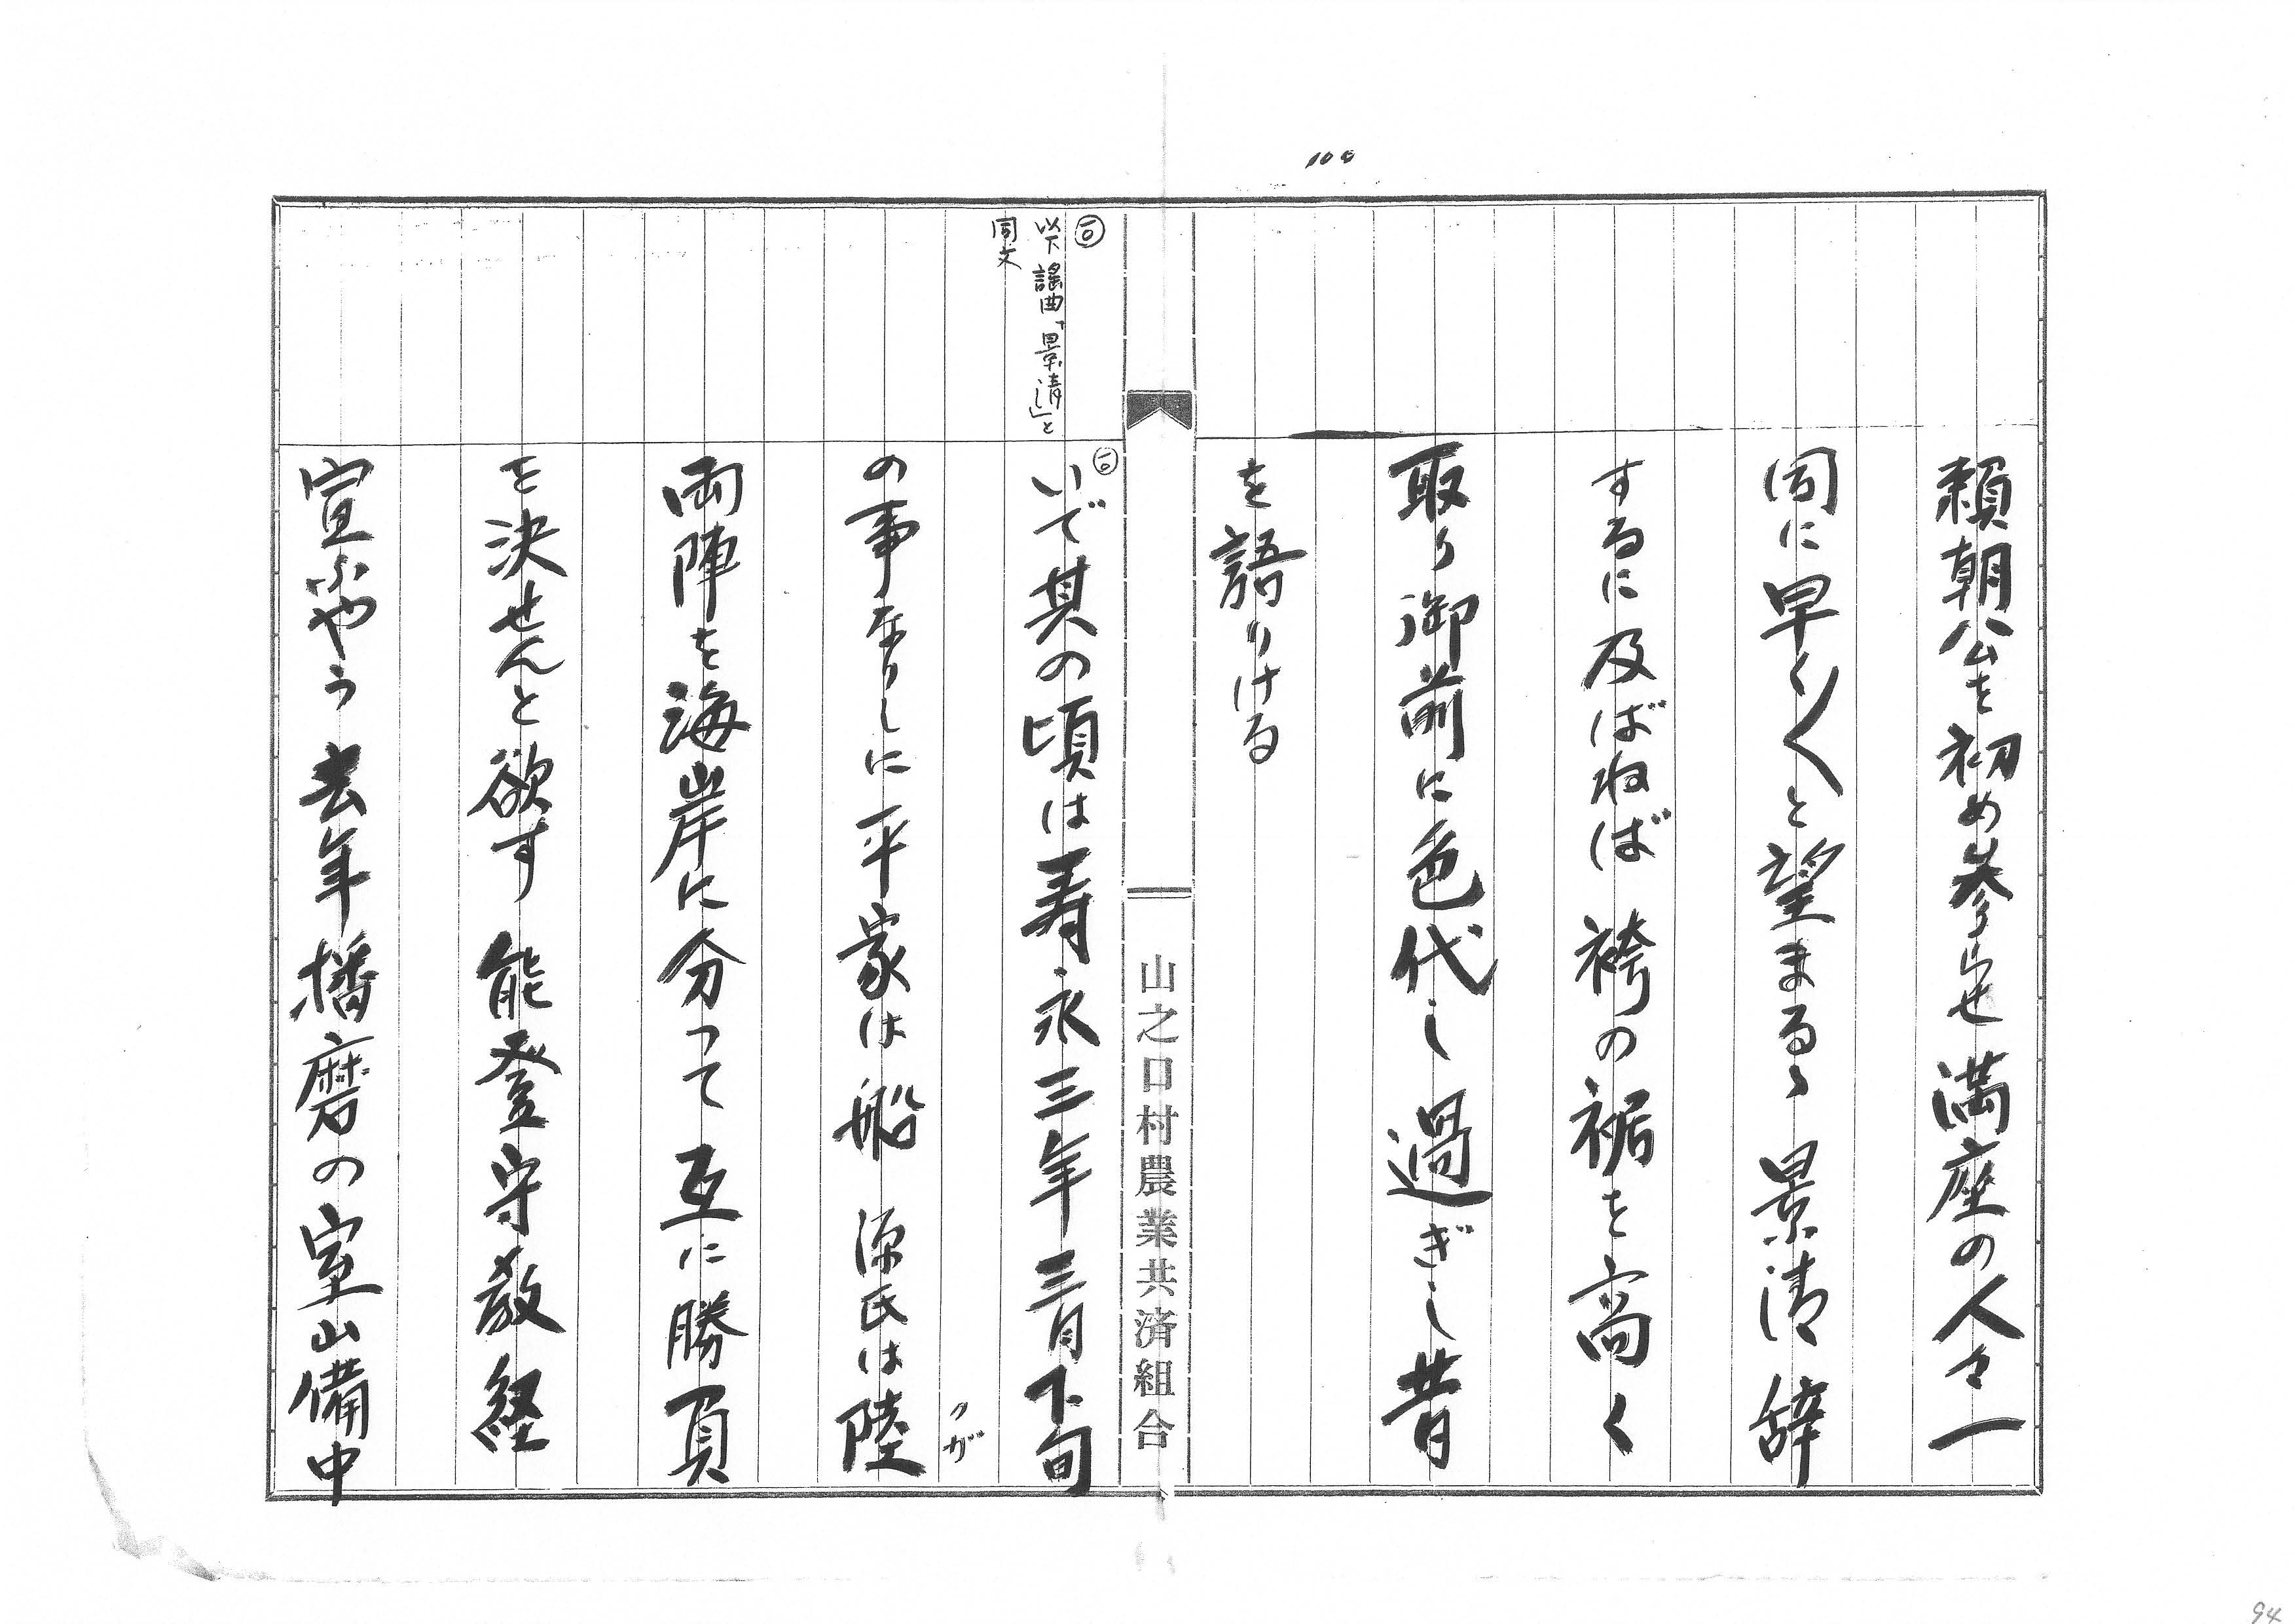 100
頼朝公を初め参らせ 満座の人々一
同に早く〳〵と望まるゝ 景清 辞
するに及ばねば 袴の裾を高く
取り御前に色代し 過ぎし昔
を語りける
山之口村農業共済組合
㊀
以下 謡曲「景清」と
同文
㊀いで其の頃は寿永三年三月下旬
の事なりしに平家は船 源氏は陸
クガ
両陣を海岸に分って互に勝負
を決せんと欲す 能登守教経
宣ふやう 去年播磨の室山備中
94